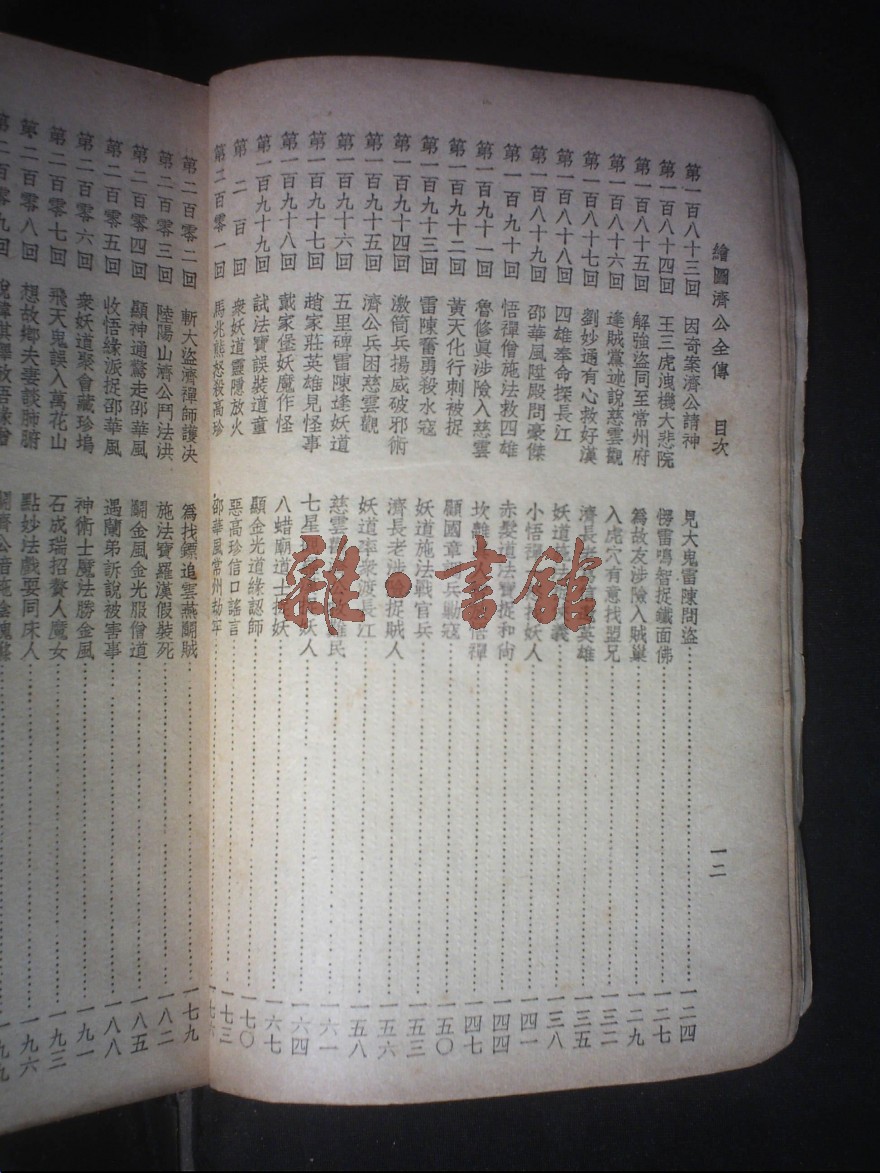 繪圖濟公全傳 目次 一二
第一百八十三回 因奇案濟公請神 見大鬼雷陳問盜 一二四
第一百八十四回 王三虎洩機大悲院 愣雷鳴智捉鐵面佛 一二七
第一百八十五回 解強盜同至常州府 為故友涉險入賊巢 一二九
第一百八十六回 逢賊黨述說慈雲觀 入虎穴有意找盟兄 一三二
第一百八十七回 劉妙通有心救好漢 濟長老 英雄 一三五
第一百八十八回 四雄奉命探長江 妖道 義 一三八
第一百八十九回 邵華風陞殿問豪傑 小悟禪 妖人 一四一
第一百九十回 悟禪僧施法救四雄 赤髮道法寶捉和尙 一四四
第一百九十一回 魯修眞涉險入慈雲 坎離 悟禪 一四七
第一百九十二回 黃天化行刺被捉 顧國章 兵勦寇 一五〇
第一百九十三回 雷陳奮勇殺水寇 妖道施法戰官兵 一五三
第一百九十四回 激筒兵揚威破邪術 濟長老涉險捉賊人 一五六
第一百九十五回 濟公兵困慈雲觀 妖道率衆渡長江 一五八
第一百九十六回 五里碑雷陳逢妖道 慈雲 難民 一六一
第一百九十七回 趙家莊英雄見怪事 七星 妖人 一六四
第一百九十八回 戴家堡妖魔作怪 八蜡廟道士捉妖 一六七
第一百九十九回 試法寶誤裝道童 顯金光道緣認師 一七〇
第二百回 衆妖道靈隱放火 惡高珍信口謠言 一七三
第二百零一回 馬兆熊怒殺高珍 邵華風常州劫牢 一七六
第二百零二回 斬大盜濟禪師護決 為找鏢追雲燕鬭賊 一七九
第二百零三回 陸陽山濟公鬥法洪 施法寶羅漢假裝死 一八二
第二百零四回 顯神通驚走邵華風 鬭金風金光服僧道 一八五
第二百零五回 收悟緣派捉邵華風 遇蘭弟訴說被害事 一八八
第二百零六回 衆妖道聚會藏珍塢 神術士魔法勝金風 一九一
第二百零七回 飛天鬼誤入萬花山 石成瑞招贅人魔女 一九三
第二百零八回 想故鄉夫妻談肺腑 點妙法戲耍同床人 一九六
第二百零九回 一九九
雜·書館